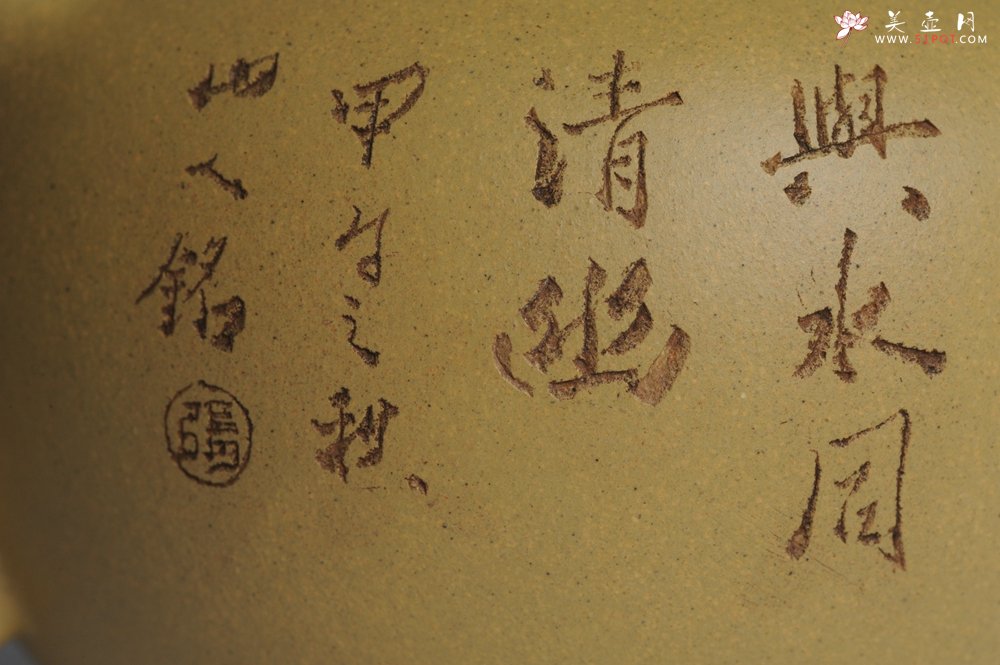 與水同
清幽
甲午之秋
山人銘
張
美壶网
WWW.51POT.COM